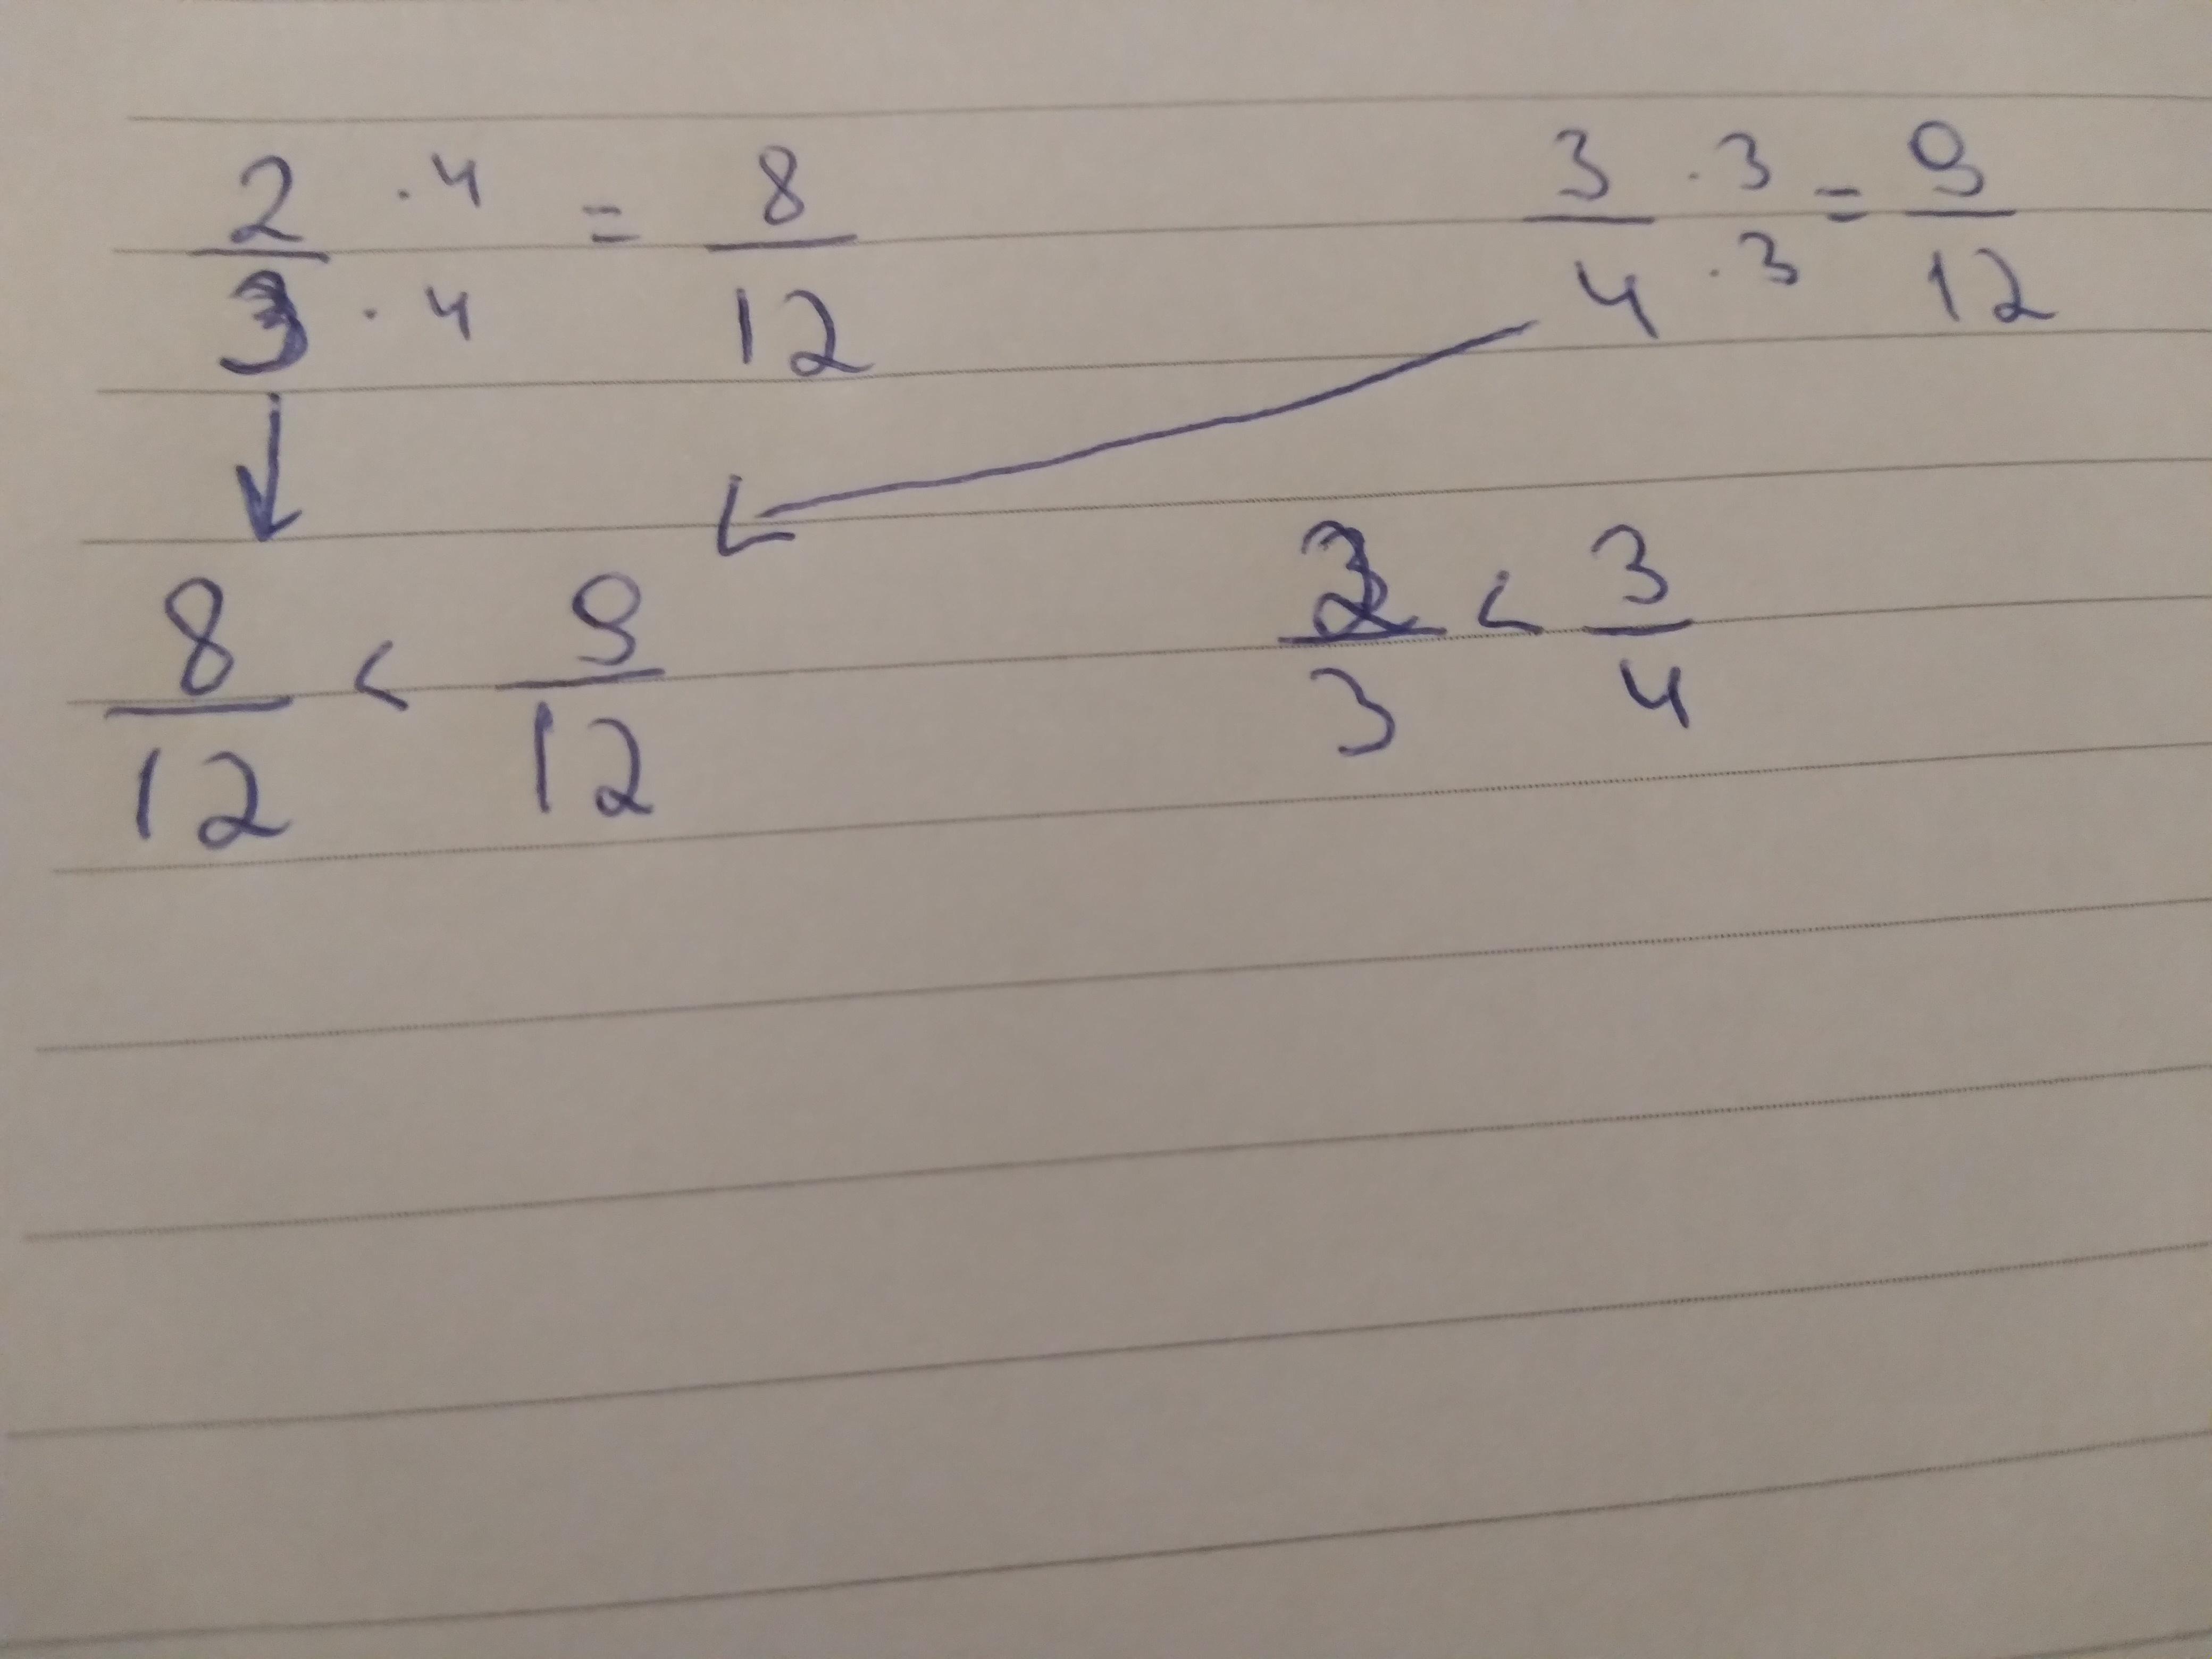 2/3 · 4/4 = 8/12 3/4 · 3/3 = 9/12
8/12 < 9/12 2/3 < 3/4